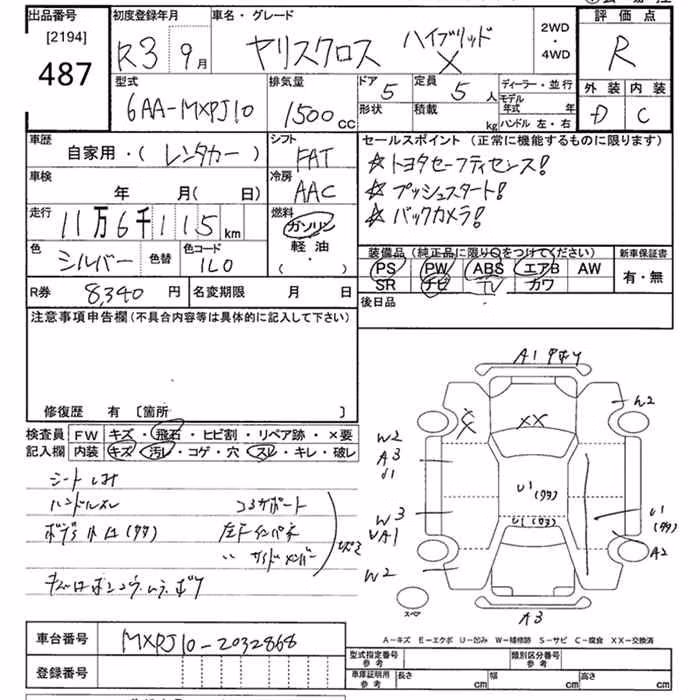 出品番号
[2194]
487
初度登録年月
R3 9月
車名・グレード
ヤリスクロス ハイブリッド X
2WD
・
4WD
評価点
R
外装 内装
D C
型式
6AA-MXPJ10
排気量
1500cc
ドア 5
形状
定員 5人
積載 kg
ディーラー・並行
モデル年式 年
ハンドル 左・右
車歴
自家用・(レンタカー)
シフト
FAT
車検
年 月(日)
冷房
AAC
走行
11万6千115km
燃料
ガソリン
軽油
( ・ )
色
シルバー
色替
色コード
1L0
セールスポイント(正常に機能するものに限ります)
☆トヨタセーフティセンス!
☆プッシュスタート!
☆バックカメラ!
装備品(純正品に限り○をつけてください)
PS PW ABS エアB AW
SR ナビ TV カワ
新車保証書
有・無
後日品
R券 8,340円
名変期限 月 日
注意事項申告欄(不具合内容等は具体的に記入して下さい)
修復歴 有 [箇所 ]
検査員
記入欄
FW キズ・飛石・ヒビ割・リペア跡・×要
内装 キズ・汚レ・コゲ・穴・スレ・キレ・破レ
シートしみ
ハンドルスレ
コアサポート
左Fインパネ
〃 サイドメンバー
A1
W2
XX
X
W2
A3
U1
(タタ)
U1(タタ)
W3
UA1
U1
(タタ)
A2
W2
スペア
A3
A-キズ E-エクボ U-凹み W-補修跡 S-サビ C-腐食 XX-交換済
車台番号
MXPJ10-2032868
登録番号
型式指定番号
参考
類別区分番号
参考
車庫証明用
参考
長さ cm
幅 cm
高さ cm